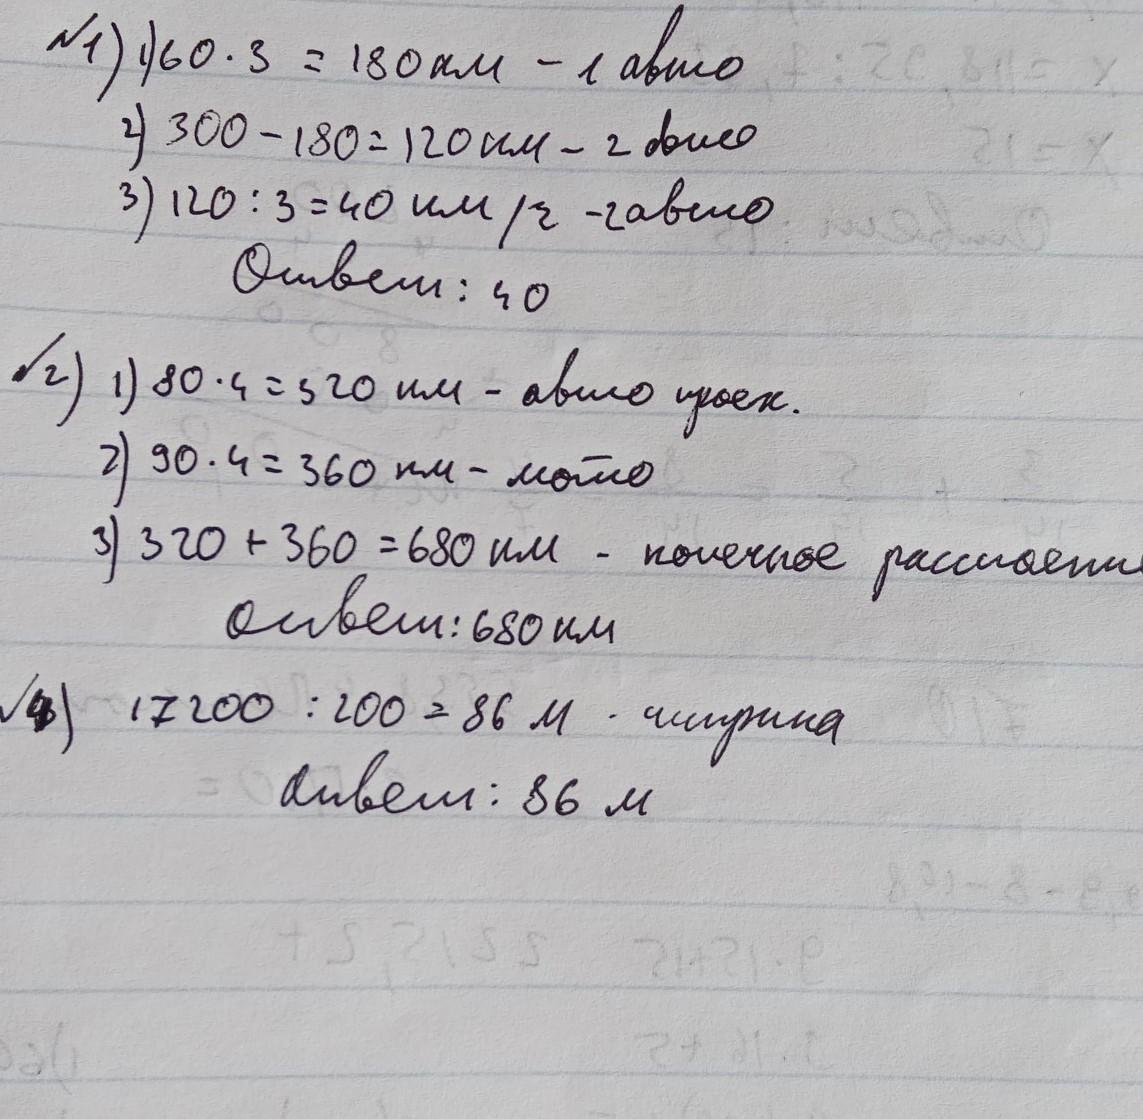 №1) 1) 60 · 3 = 180 км – 1 авто
2) 300 – 180 = 120 км – 2 авто
3) 120 : 3 = 40 км/ч – 2 авто
Ответ: 40
№2) 1) 80 · 4 = 320 км – авто проех.
2) 90 · 4 = 360 км – мото
3) 320 + 360 = 680 км - конечное расстояние
Ответ: 680 км
№4) 17200 : 200 = 86 м - ширина
Ответ: 86 м